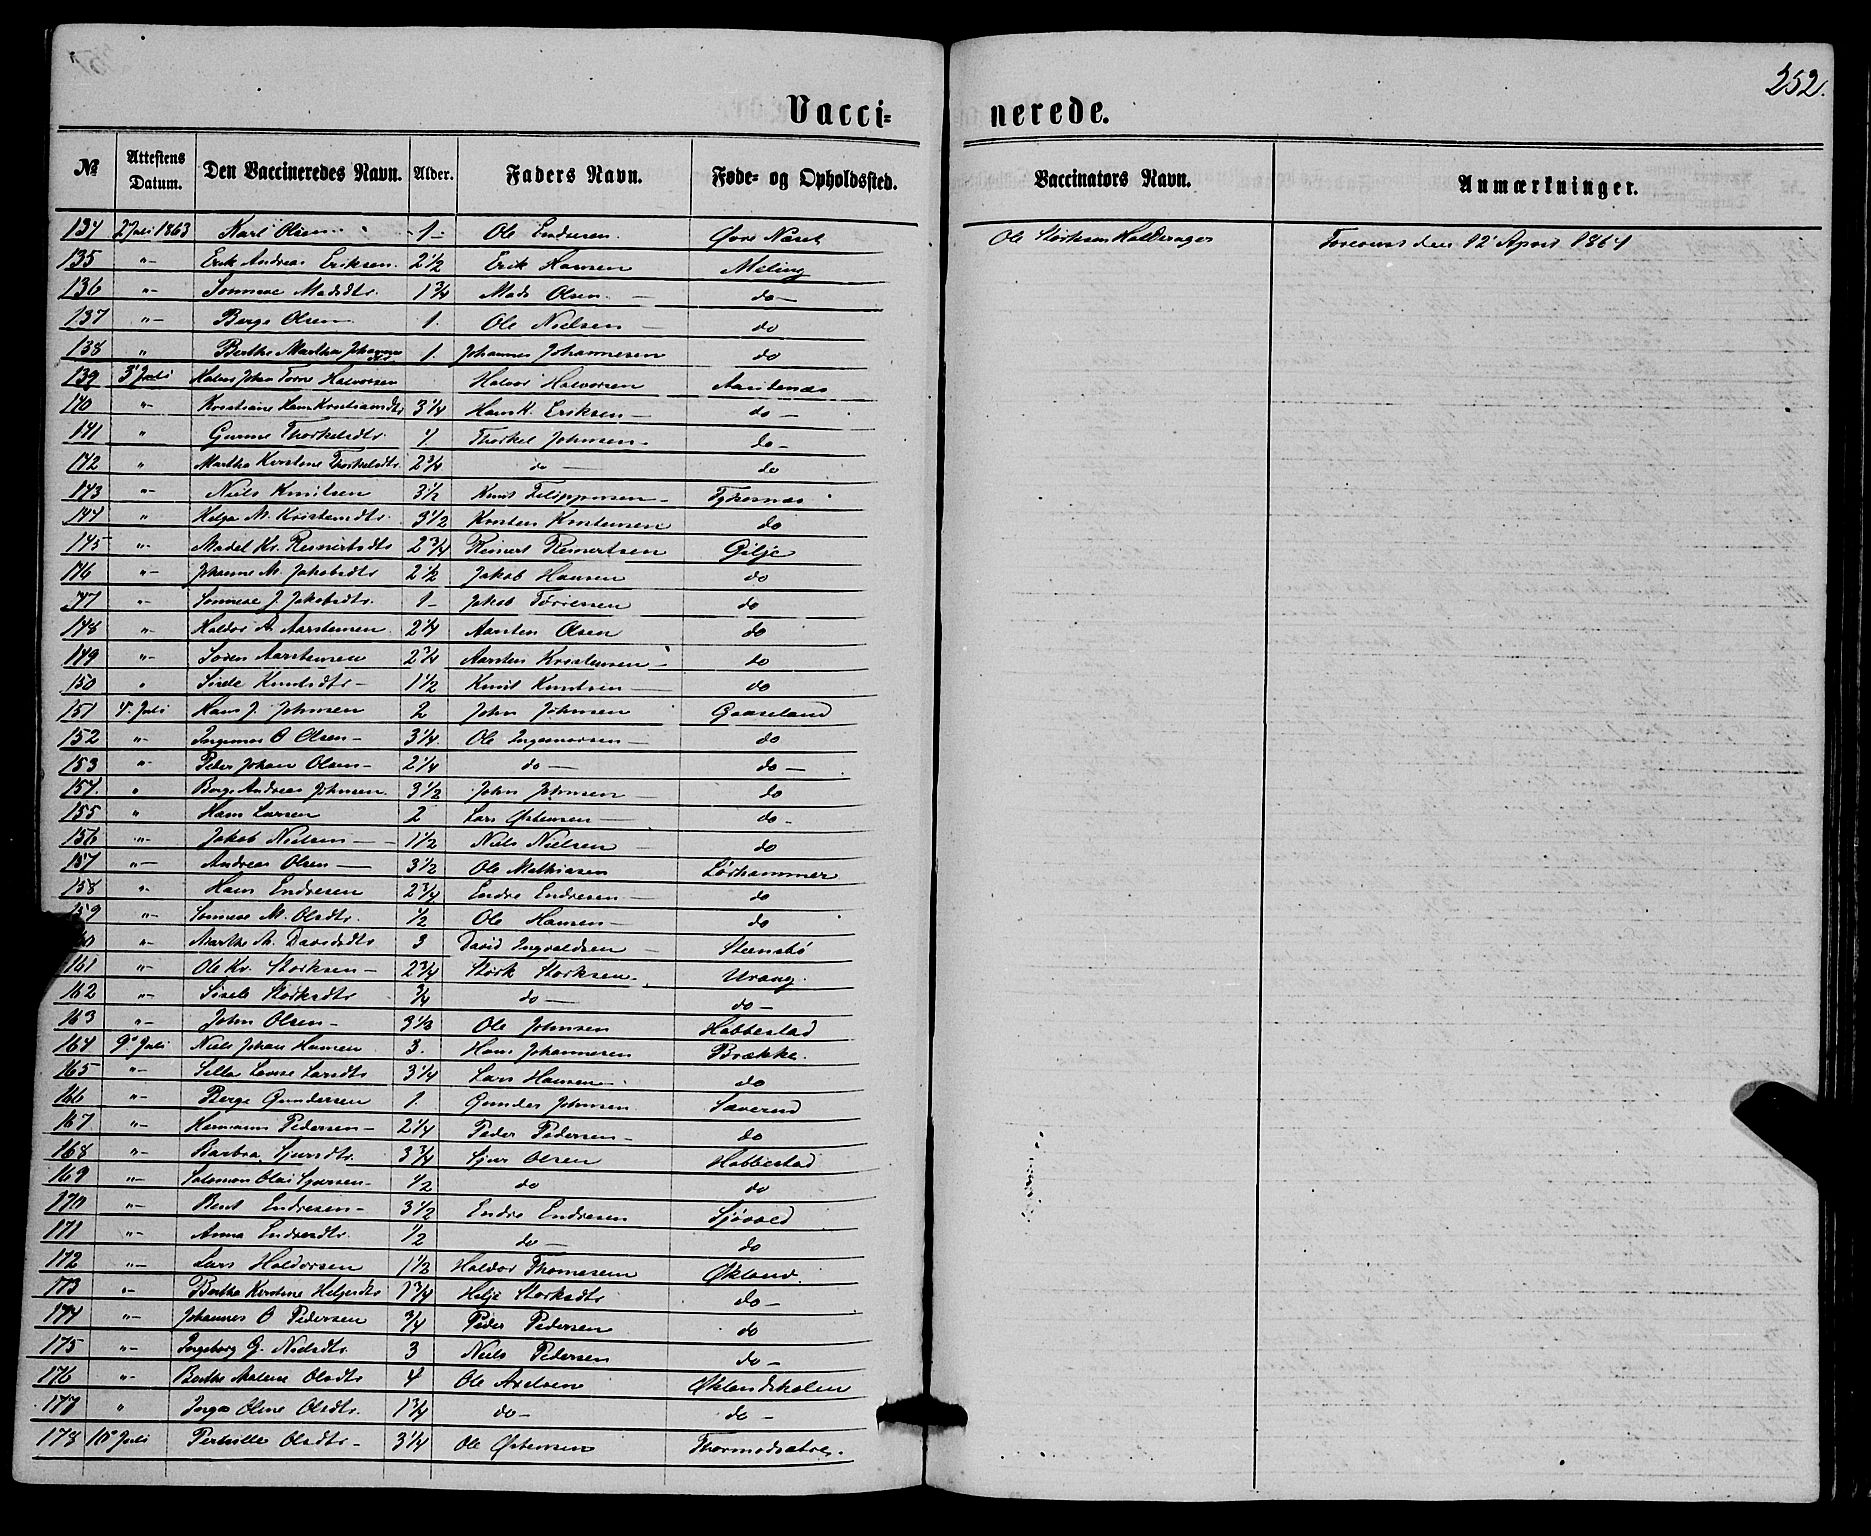 252.
Vacci= nerede.
№ Attestens Datum. Den Vaccineredes Navn. Alder. Faders Navn. Føde- og Opholdssted. Vaccinators Navn. Anmærkninger.
134 2 Juli 1863 Karl Olsen 1 - Ole Endresen Øvre Næset Ole Størksen Haldorager den 12 April 1864
135 "- Erik Andreas Eriksen 2 1/2 Erik Hansen Meling
136 "- Sønneve Madsdtr. 1 3/4 Mads Olsen - do -
137 "- Berge Olsen 1. Ole Nielsen - do
138 " Berthe Martha 1. Johannes Johannesen do
139 3' Juli Johan Halvorsen Halvor Halvorsen
140 "- Kristiane 3 1/4 Hans K. Eriksen - do -
141 " Gurine Thorkelsdtr. Thorkel Johnsen - do -
142 " Martha Kirstine Thorkelsdtr. 2 3/4 do - do
143 "- Niels Knutsen 3 1/2 Knut Filippusen -
144 " Helga M. Kristensdtr. 3 1/2 do
145 "- Madel Kr. Reinertsdtr 2 3/4 Reinert Reinertsen Gilje
146 "- Johanne M. Jakobsdtr 2 1/2 Jakob Hansen do
147 "- Sønneve J Jakobsdtr. 1 - Jakob do
148 "- Haldor A. Aarstensen 2 1/4 Aarsten Olsen do
149 "- Søren Aarstensen 2 3/4 Aarsten Kristensen - do
150 " Sisele Knutsdtr - 1 1/2 Knut Knutsen - do
151 4. Juli Hans J. Johnsen 2 John Johnsen Gaaseland
152 "- Ingemor O Olsen - 3 1/4. Ole Ingemorsen - do
153 " Peder Johan Olsen - 2 1/4 do - do -
154. " Berge Andreas Johnsen 3 1/2 John Johnsen - do
155 " Hans Larsen 2 Lars Østensen - do -
156 "- Jakob Nielsen - 1 1/2 Niels Nielsen - do
157 "- Andreas Olsen - 3 1/2 Ole Mathiasen Lørhammer
158 "- Hans Endresen 2 3/4 Endre Endresen - do
159 "- Sønneve M. Olsdtr. 1/2 Ole Hansen - do
"- Marthe M. Davidsdtr 3 David Ingvaldsen - Steensbø
161 "- Ole Kr. Størksen - 2 3/4 Størk Størksen Urang
162 "- Sisele Størksdtr 3/4 do - do -
163 "- John Olsen - 3 1/3 Ole Johnsen Habbestad
164 9' Juli Niels Johan Hansen 3. Hans Johannesen Brække.
165 "- Larsdtr 3 1/4 Lars Hansen - do
166 "- Berge Gundersen 1. Gunder Johnsen Sæverud
167 "- Hermann Pedersen - 2 1/4 Peder Pedersen - do
168 "- Barbra Sjursdtr. 3 3/4 Sjur Olsen Habbestad
169 "- Salomon Olai Sjursen - 1/2 do do
170 "- Bent Endresen - 3 1/2 Endre Endresen
171 "- Anna Endresdtr. 1/2 do - do
172 "- Lars Haldorsen 1 1/2 Haldor Thomesen Økland.
173 "- Berthe Kirstine Heljesdtr 1 3/4 Helje Størksdtr do -
174 "- Johannes O Pedersen 3/4 Peder Pedersen do
175 "- Ingeborg G. Nielsdtr. 3 Niels Pedersen do -
176 "- Berthe Malene Olsdtr 4 Ole Axelsen Øklandshølen
177 " Inga Oline Olsdtr. 1 3/4 do - do -
178 10' Juli Pernille Olsdtr - 3 1/4 Ole Østensen Thormodsætre.